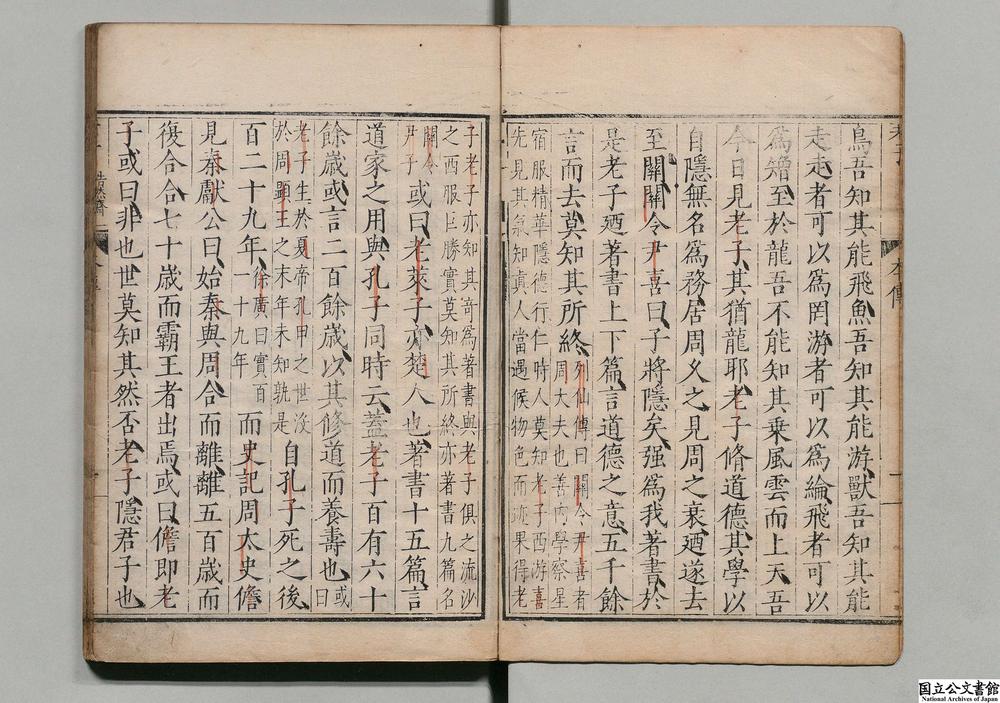 鳥吾知其能飛魚吾知其能游獸吾知其能
走走者可以爲罔游者可以爲綸飛者可以
爲矰至於龍吾不能知其乗風雲而上天吾
今日見老子其猶龍耶老子脩道德其學以
自隱無名爲務居周乆之見周之衰廼遂去
至關關令尹喜曰子將隱矣强爲我著書於
是老子廼著書上下篇言道德之意五千餘
言而去莫知其所終
列仙傳曰關令尹喜者
周大夫也善内學察星
宿服精華隱德行仁時人莫知老子西游喜
先見其氣知真人當遇候物色而迹果得老
子老子亦知其奇爲著書與老子俱之流沙
之西服巨勝實莫知其所終亦著書九篇名
關令
尹子
或曰老萊子亦楚人也著書十五篇言
道家之用與孔子同時云蓋老子百有六十
餘歲或言二百餘歲以其修道而養壽也
或
曰
老子生於夏帝孔甲之世没
於周顯王之末年未知孰是
自孔子死之後
百二十九年
徐廣曰實百
一十九年
而史記周太史儋
見秦獻公曰始秦與周合而離離五百歲而
復合合七十歲而霸王者出焉或曰儋即老
子或曰非也世莫知其然否老子隱君子也
本傳
国立公文書館
National Archives of Japan